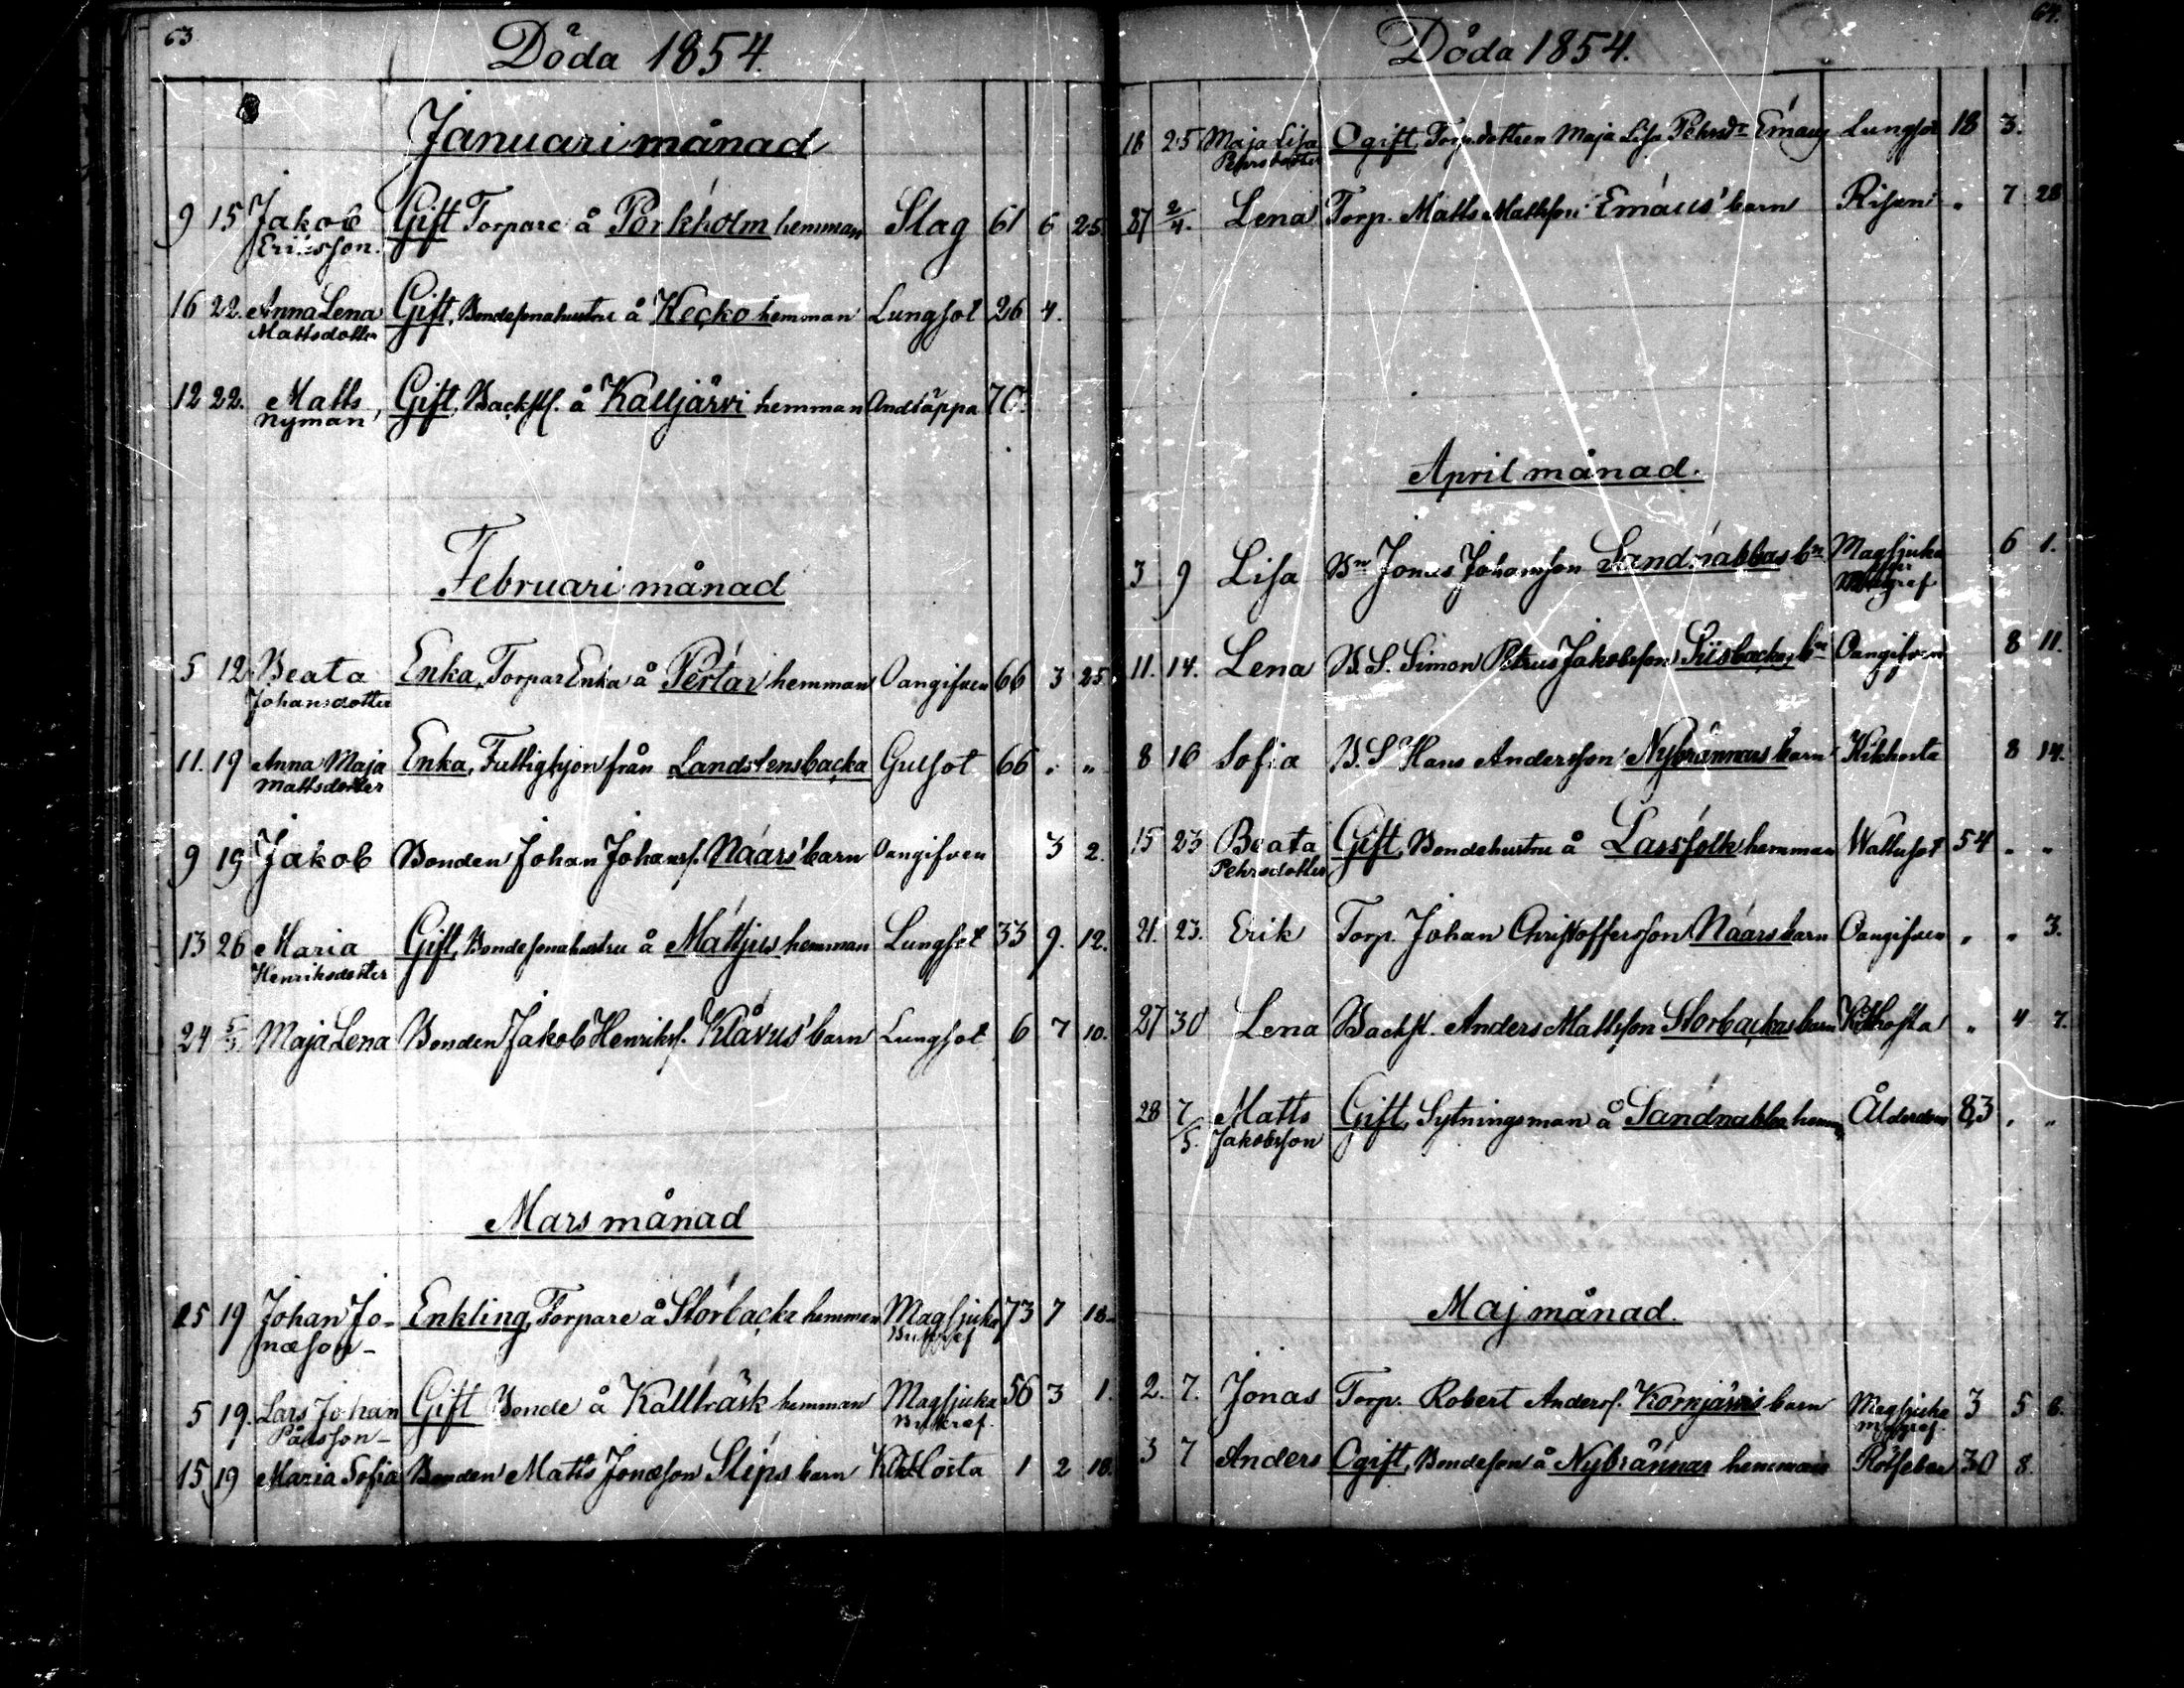 63
Döda 1854.
Januari månad
9 15 Jakob Gift Torpare å Porkholm hemman Slag 61 6 25
Eriksson.
16 22. Anna Lena Gift, Bondesonahustru å Kecko hemman Lungsot 26 4.
Mattsdotter
12 22. Matts Gift, Backst. å Kalljärvi hemman Andtäppa 70.
Nyman
Februari månad
5 12 Beata Enka, Torpar Enka å Pertar hemman Oangifven 66 3 25
Johansdotter
11. 19 Anna Maja Enka, Fattighjon från Landstensbacka Gulsot 66 " "
Mattsdotter
9 19 Jakob Bonden Johan Johanss. Náars' barn Oangifven 3 2.
13 26 Maria Gift, Bondesonahustru å Mattjus hemman Lungsot 33 9. 12.
Henriksdotter
24 5/3. Maja Lena Bonden Jakob Henrikss. Klåvus' barn Lungsot 6 7 10.
Mars månad
15 19 Johan Jo- Enkling, Torpare å Storbacka hemman Magsjuka 73 7 18
naeson-
5 19. Lars Johan Gift Bonde å Kallträsk hemman Magsjuka 56 3 1.
Pålsson-
15 19 Maria Sofia Bonden Matts Jonæson Slips barn Kikhosta 1 2 18.
64.
Döda 1854.
18 25 Maja Lisa Ogift, Torp.dottren Maja Lisa Pehrsdr Emaus Lungsot 18 3.
Pehrsdotter
27 2/4. Lena Torp. Matts Mattsson Emaus' barn Risen " 7 28
April månad.
3 9 Lisa Bn Jonas Johansson Sandnabbas bn Magsjuka 6 1.
11. 14. Lena B. S. Simon Petrus Jakobsson Siisbackas bn Oangifven 8 11.
8 16 Sofia B. S Hans Andersson Nybrännars barn Kikhosta 8 14.
15 23 Beata Gift, Bondehustru å Lassfolk hemman Wattusot 54 " "
Pehrsdotter
21. 23. Erik Torp. Johan Christoffersson Náars barn Oangifven " " 3.
27 30 Lena Backst. Anders Mattsson Storbackas barn Kikhosta " 4 7.
28 7/5. Matts Gift, Sytningsman å Sandnabba Ålderdom 83 " "
Jakobsson
Maj månad.
2. 7. Jonas Torp. Robert Anderss. Kornjärvis barn Magsjuka 3 5 6.
3 7 Anders Ogift, Bondeson å Nybrännar hemman Rötfeber 30 8.